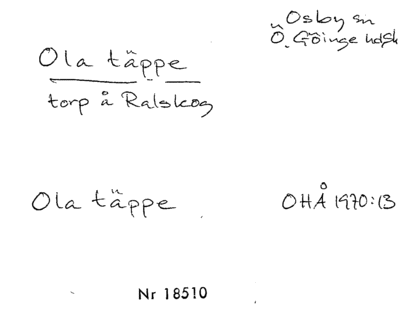 Osby sn
Ö. Göinge hdsk
Ola täppe
torp å Ralskog
Ola täppe
OHÅ 1970:13
Nr 18510